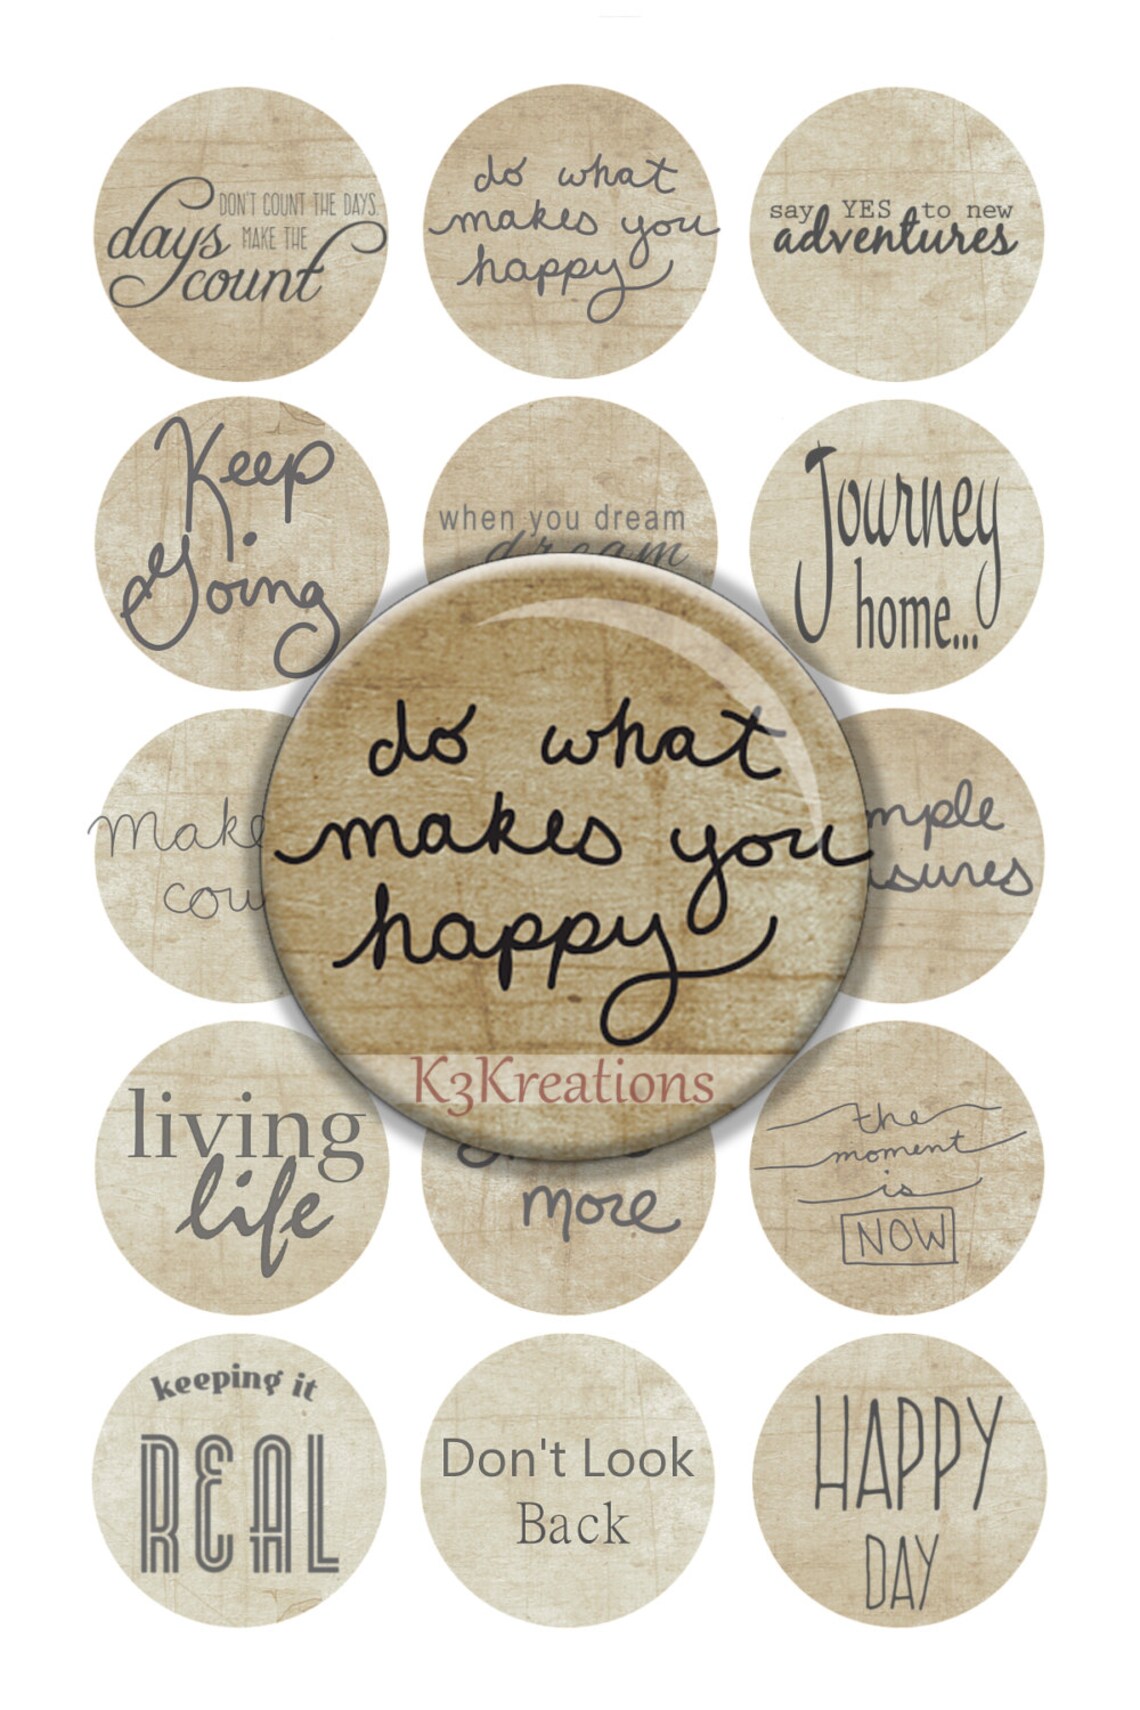 DON'T COUNT THE DAYS.
days MAKE THE
count
do what
makes you
happy
say YES to new
adventures
Keep
Going
when you dream
dream
Journey
home...
do what
makes you
happy
K3Kreations
living
life
more
the
moment
is
NOW
keeping it
REAL
Don't Look
Back
HAPPY
DAY